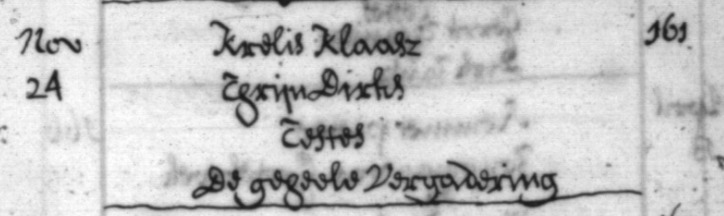 Nov Krelis Klaasz 161
24 Trijn Dirks
Testes
De geheele Vergadering